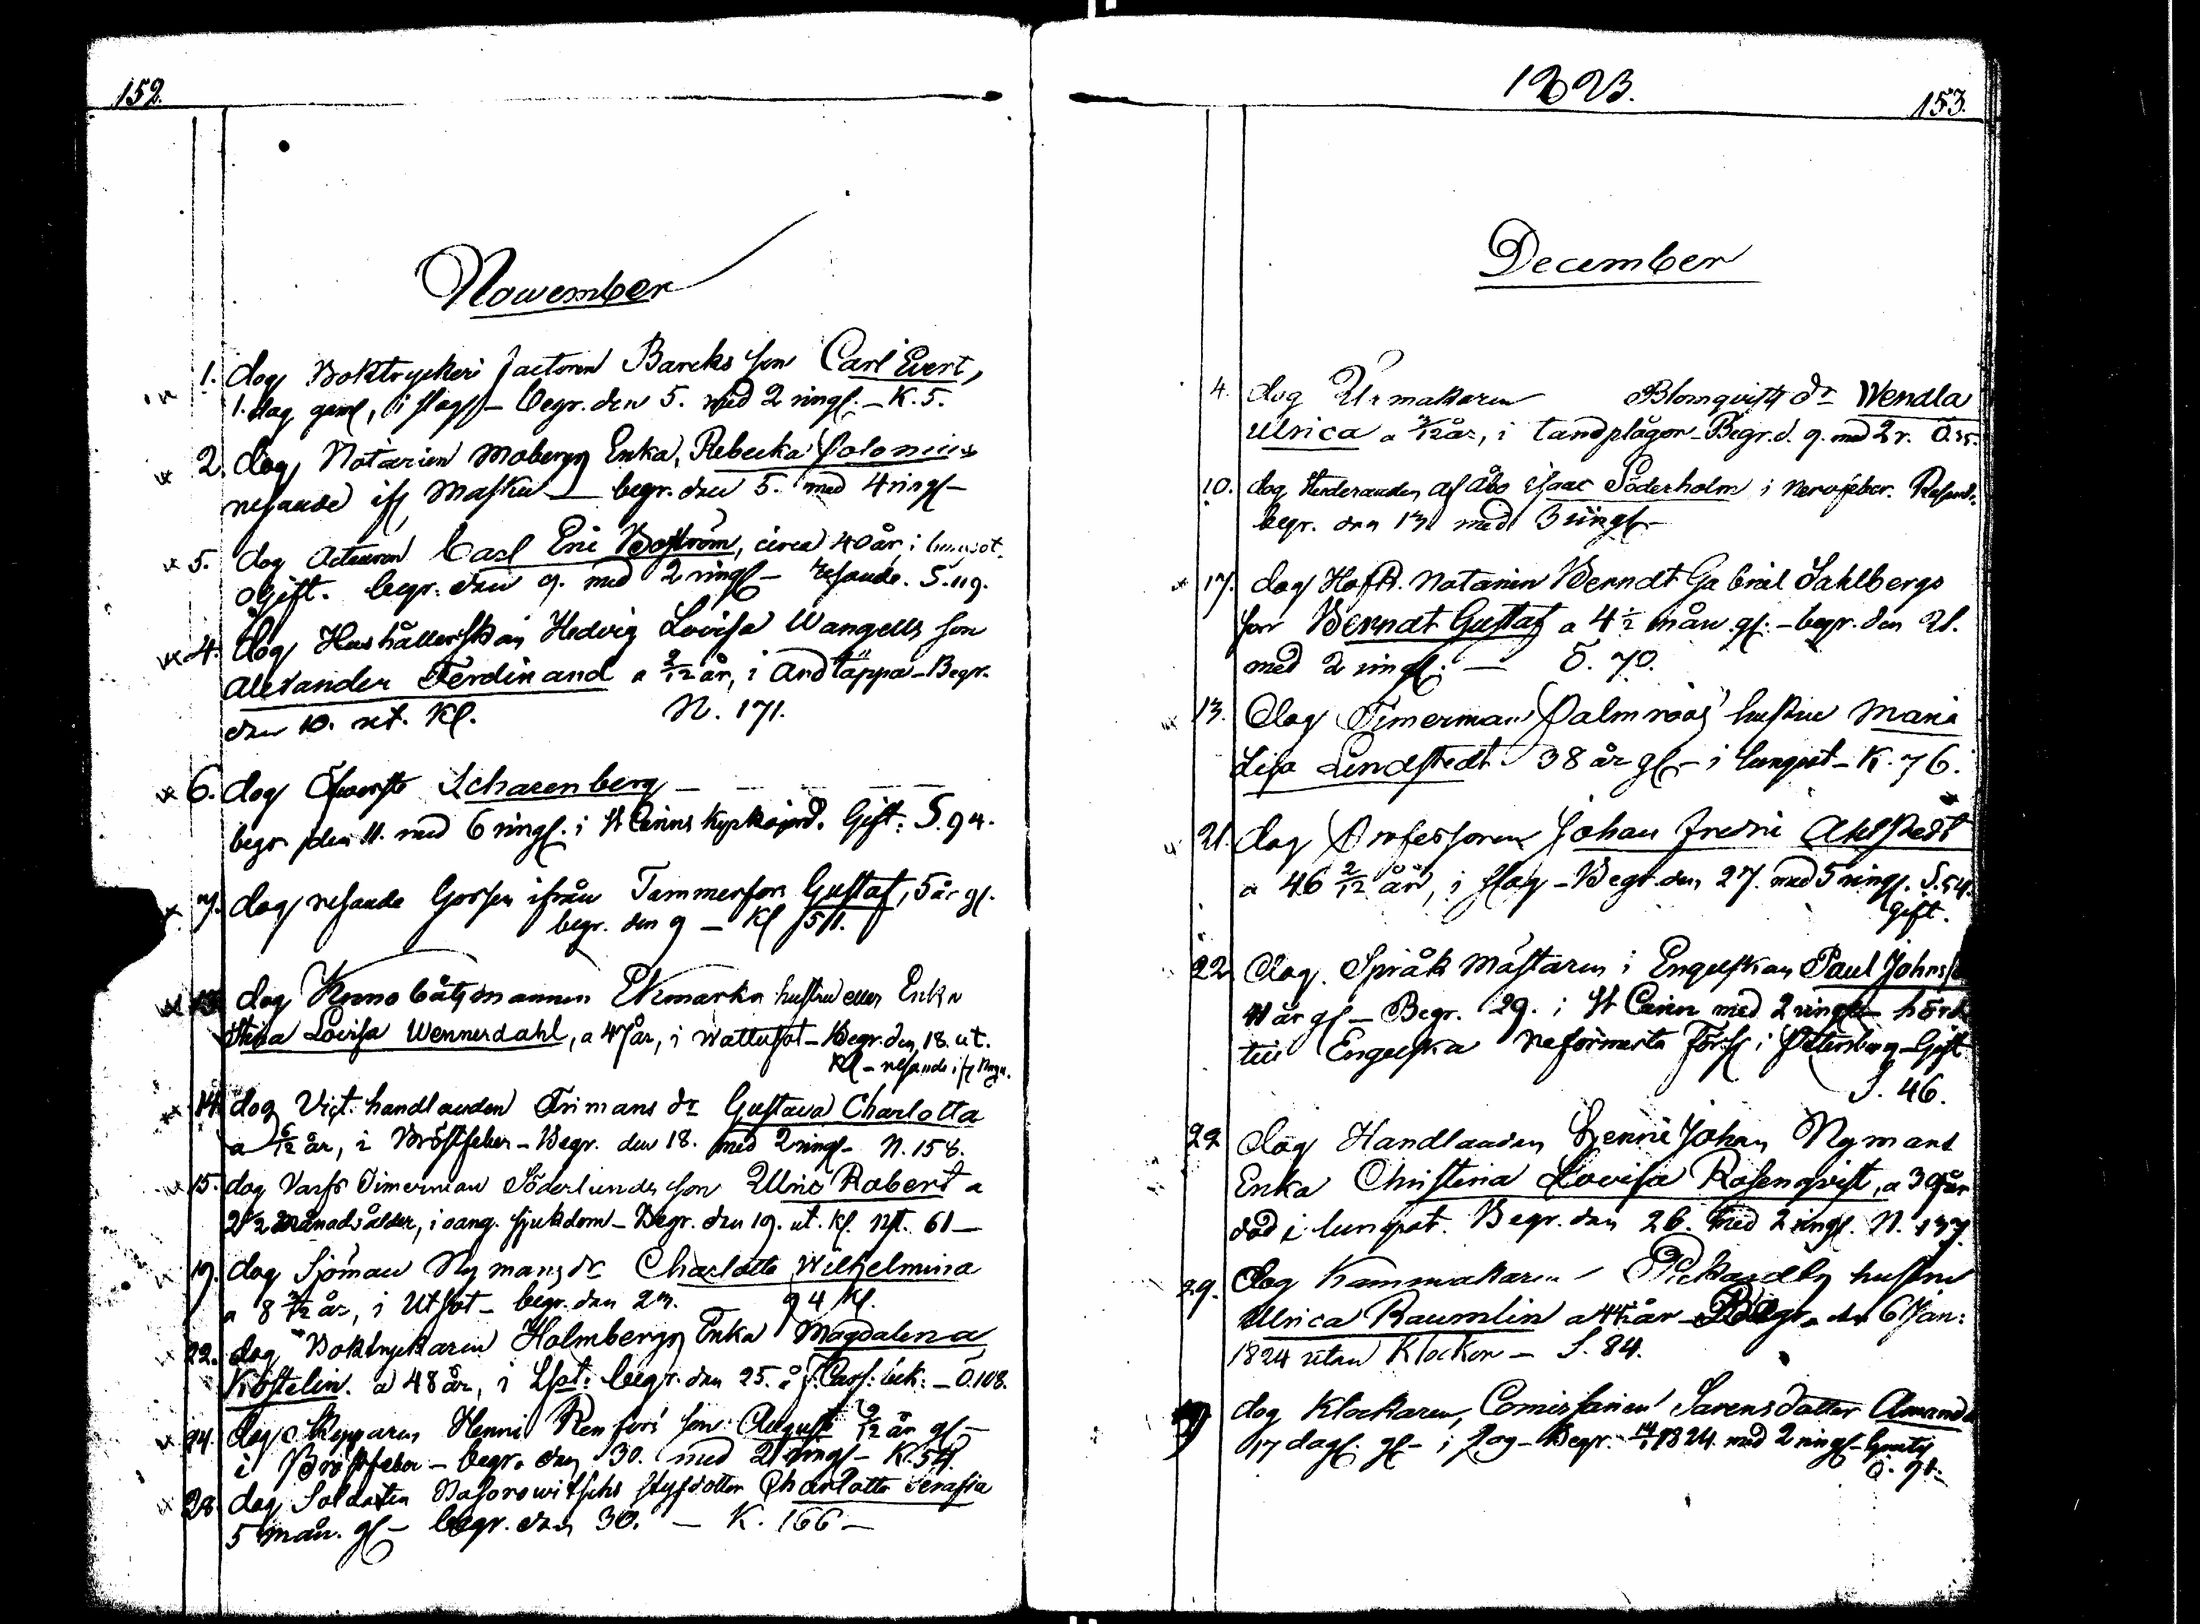 152.
Nowember
1. dog Boktryckeri factoren Barcks son Carl Evert,
1. dag gaml, i slag – begr. den 5. med 2 ringl. – K. 5.
2. dog Notarien Mobergs Enka, Rebecka Polonius
resande ifr Masku – begr. den 5. med 4 ringl –
5. dog Acteuren Carl Eric Boström, circa 40 år i lungsot.
Ogift. begr. den 9. med 2 ringl – resande. S. 119.
4. dog Hushållerskan Hedvig Lovisa Wangells son
Alexander Ferdinand a 2/12 år, i Andtäppa – Begr.
den 10. ut. Kl. N. 171.
6. dog Öfwerste Scharenberg –
begr den 11. med 6 ringl. i St Carins kyrkojord. Gift. S. 94.
7. dog resande Gossen ifrån Tammerfors Gustaf, 5 år gl.
begr. den 9 – Kl
13. dog Kronobåtsmannen Ekmarks hustru eller Enka
Stina Lovisa Wennerdahl, a 47 år, i Wattusot – Begr. den 18. ut.
Kl – resande ifr
14. dog Vict. handlanden Frimans dr Gustava Charlotta
a 6/12 år, i Bröstfeber – Begr. den 18. med 2 ringl – N. 158.
15. dog Varfs Timerman Söderlunds son Ulric Robert a
2 1/2 månads ålder, i oang. sjukdom – Begr. den 19. ut. Kl. 61 –
19. dog Sjöman Nymans dr Charlotta Wilhelmina
a 8 3/12 år, i Utsot – begr. den 23. 94 Kl.
22. dog Boktryckaren Holmbergs Enka Magdalena
Köstelin. a 48 år, i begr. den 25. – Ö. 108.
24. dog Skepparen Henric Renfors son August 2/12 år gl –
i Bröstfeber – begr. den 30. med 2 ringl – K. 54.
28. dog Soldaten Styfdotter Charlotta Serafia
5 mån. gl – begr. den 30. – K. 166 –
1823.
153.
December
4. dog Urmakaren Blomqvists dr Wendla
Ulrica a 3/12 år, i tandplågor – Begr. d. 9. med 2 r. Ö. 35.
10. dog Studeranden af Åbo Isaac Söderholm i Nervfeber.
begr. den 13. med 3 ringl –
17. dog HofR. Notarien Berndt Gabriel Sahlbergs
son Berndt Gustaf a 4 1/2 mån. gl. – begr. den 21.
med 2 ringl. – Ö. 70.
13. dog Timerman Palmroos' hustru Maria
Lisa Lindstedt 38 år gl – i lungsot – K. 76.
21. dog Professoren Johan Fredric Ahlstedt
a 46 2/12 år, i slag – Begr. den 27. med 5 ringl. S. 54.
Gift.
22. dog. Språk Mästaren i Engelskan Paul Johnson
41 år gl – Begr. 29. i St Carin med 2 ringl – hörde
till Engelska reformerta Förs i Petersburg – Gift
S. 46.
22 dog Handlanden Henric Johan Nymans
Enka Christina Lovisa Rosenqvist, a 39 år
död i lungsot. Begr. den 26. med 2 ringl. N. 137.
29. dog Kammakaren hustru
Ulrica Raumlin a 44 år – Begr. den 6 Jan:
1824 utan klockor – S. 84.
dog Klockaren, Comissarien Sarens dotter Amanda
17 dag. gl – i slag – Begr. 1824 med 2 ringl –
Ö. 91.